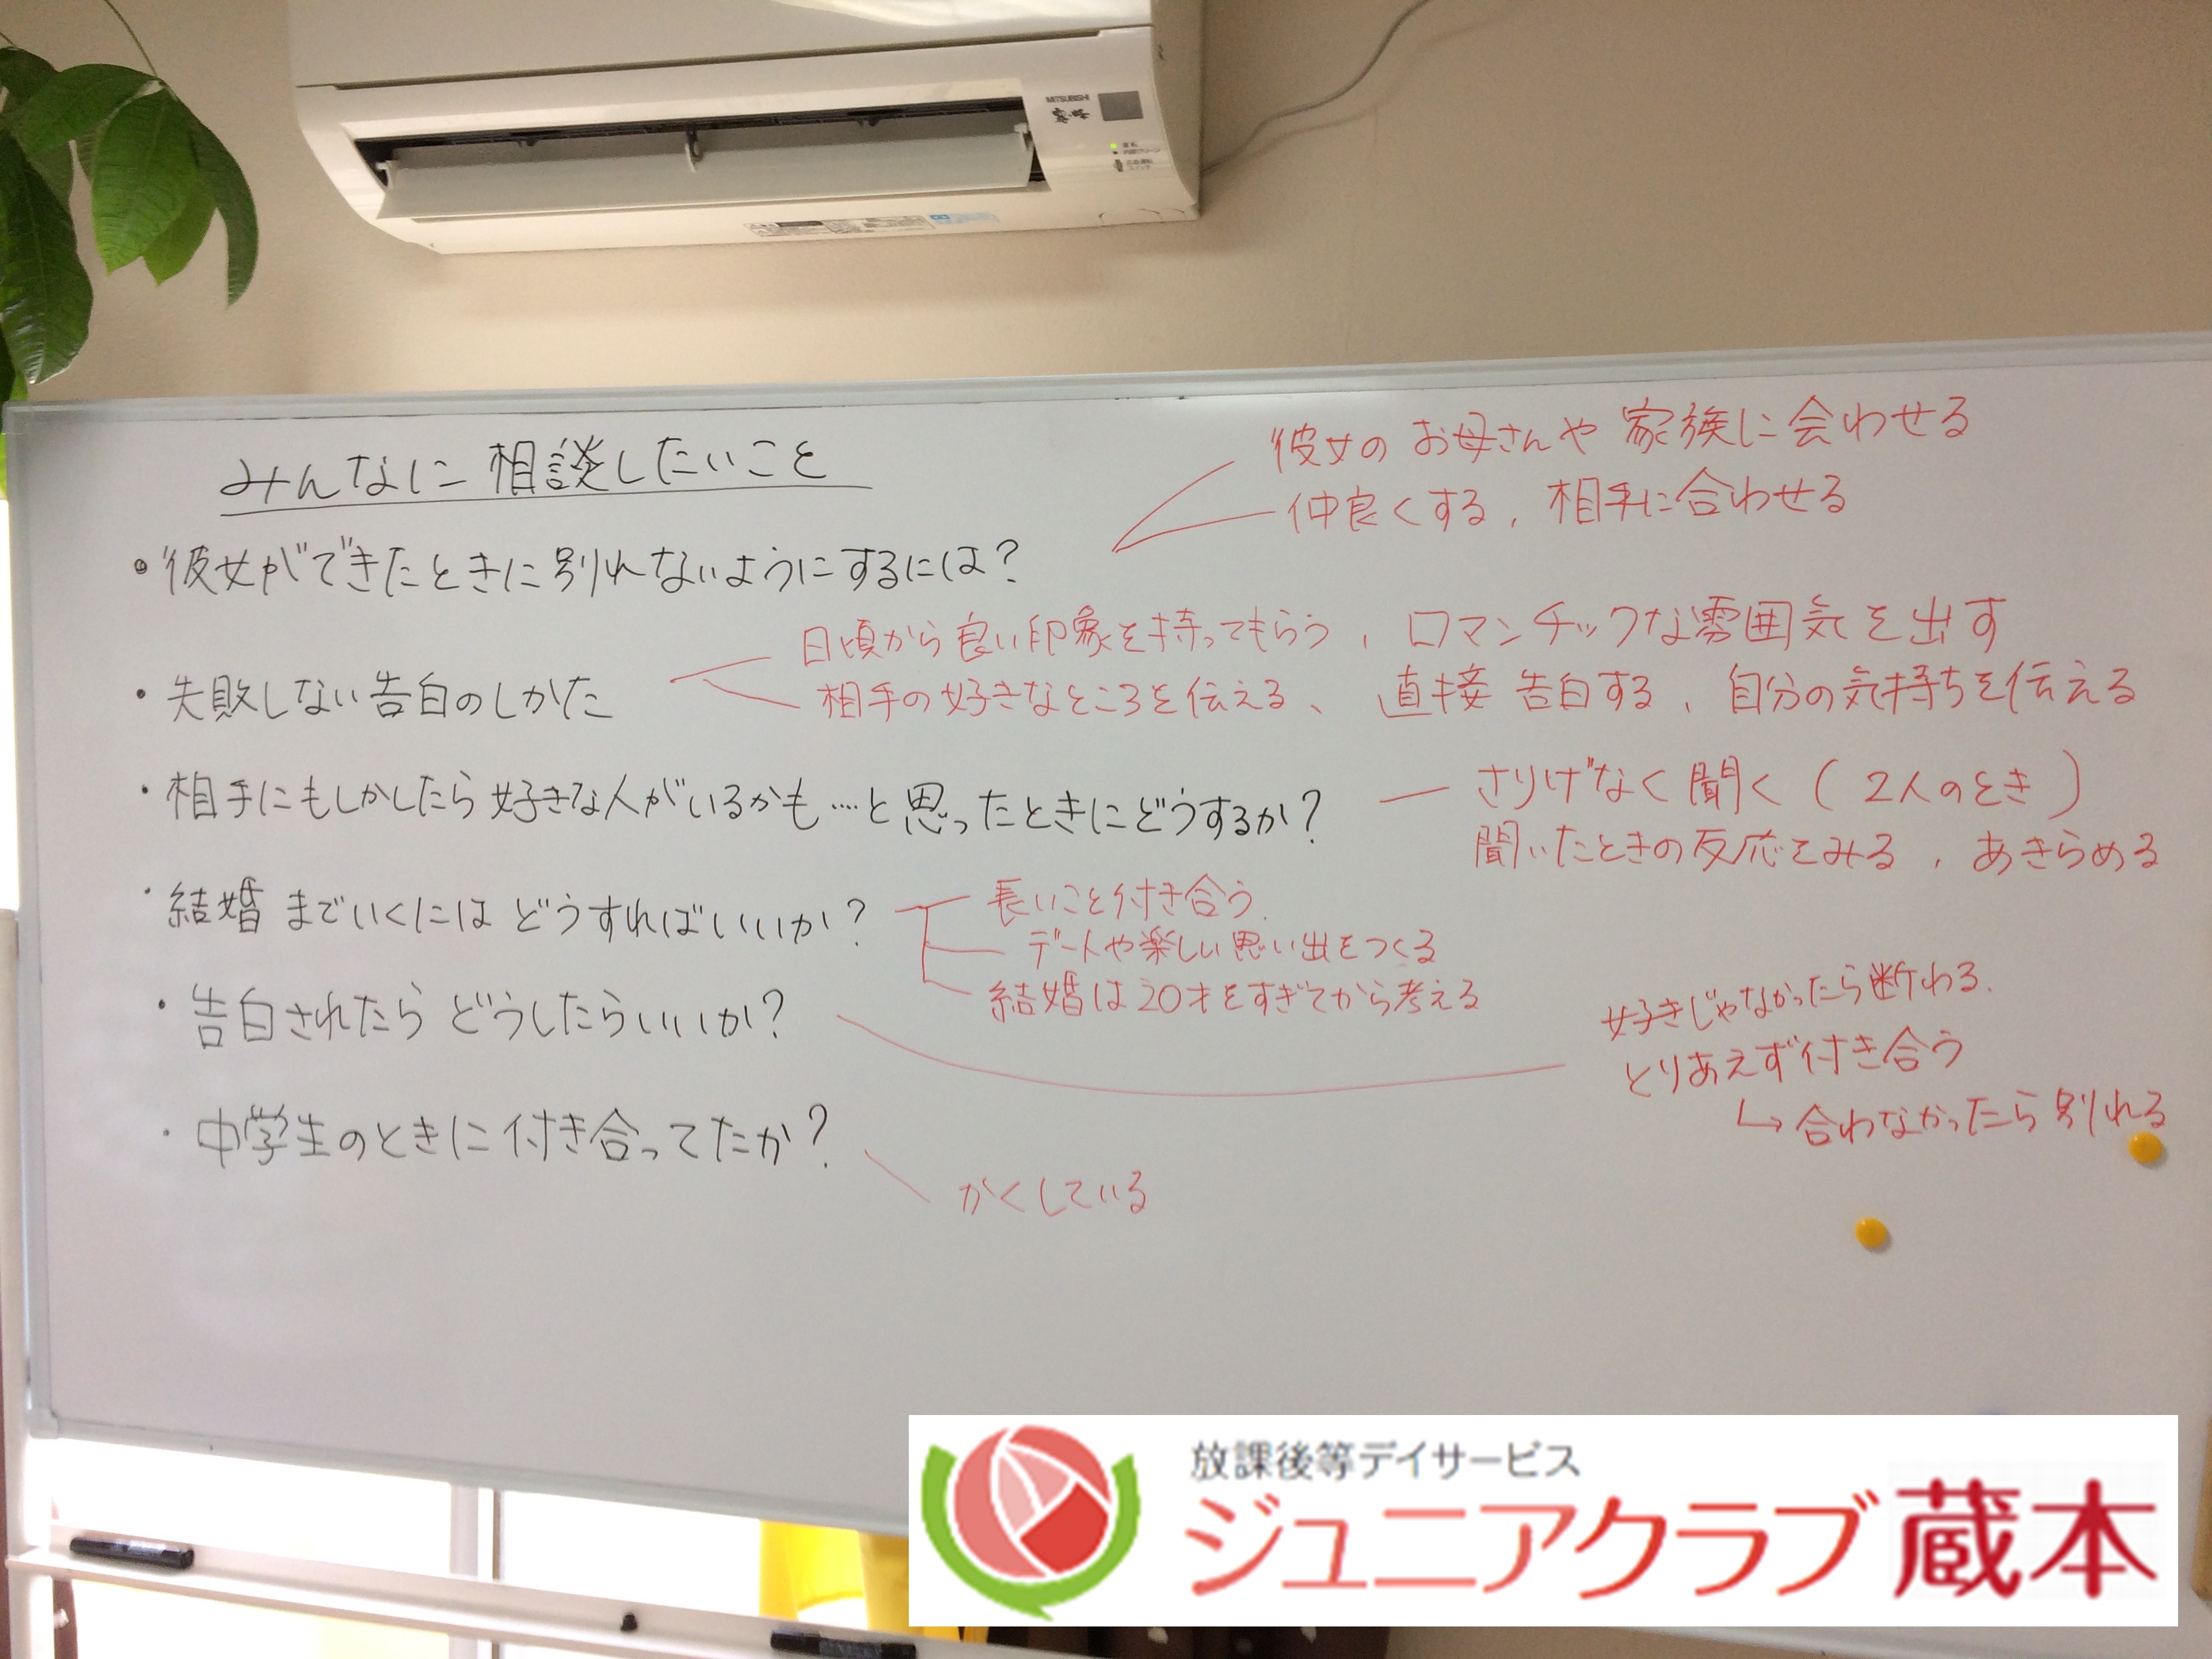 MITSUBISHI
霧ヶ峰
みんなに相談したいこと
・彼女ができたときに別れないようにするには?
彼女のお母さんや家族に会わせる
仲良くする,相手に合わせる
・失敗しない告白のしかた
日頃から良い印象を持ってもらう,ロマンチックな雰囲気を出す
相手の好きなところを伝える、直接告白する,自分の気持ちを伝える
・相手にもしかしたら好きな人がいるかも....と思ったときにどうするか?
さりげなく聞く(2人のとき)
聞いたときの反応をみる,あきらめる
・結婚までいくにはどうすればいいか?
長いこと付き合う.
デートや楽しい思い出をつくる
結婚は20才をすぎてから考える
・告白されたらどうしたらいいか?
好きじゃなかったら断わる.
とりあえず付き合う
↳合わなかったら別れる
・中学生のときに付き合ってたか?
かくしている
放課後等デイサービス
ジュニアクラブ蔵本